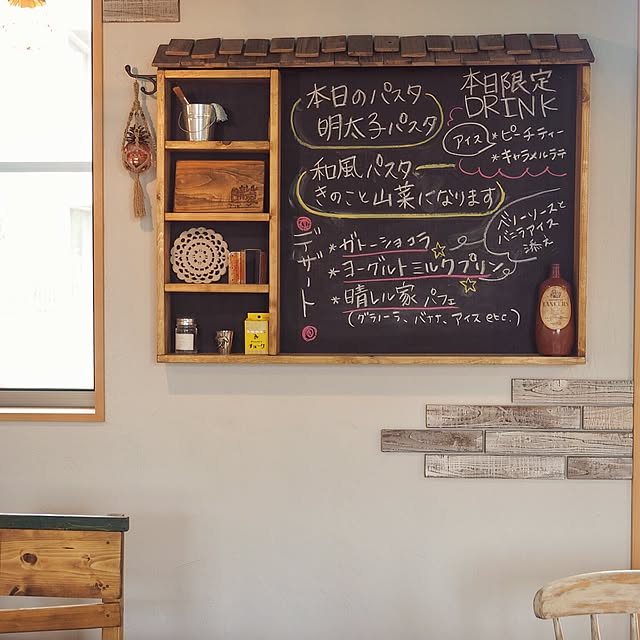 本日のパスタ
明太子パスタ
和風パスタ
きのこと山菜になります
本日限定
DRINK
アイス
*ピーチティー
*キャラメルラテ
デザート
*ガトーショコラ
*ヨーグルトミルクプリン
ベリーソースと
バニラアイス
添え
*晴レル家 パフェ
(グラノーラ、バナナ、アイス etc.)
LANCERS